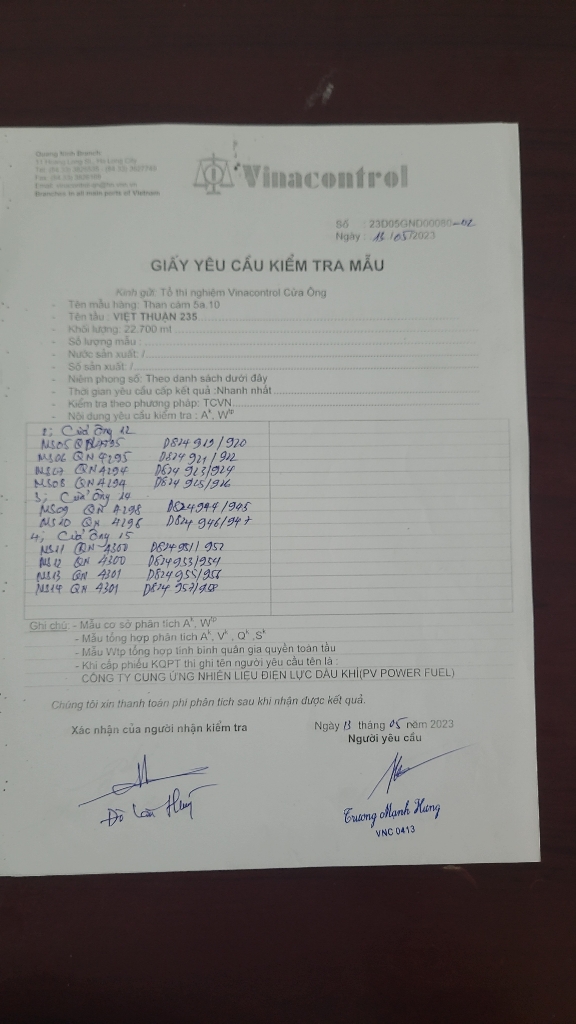 Quang Ninh Branch
11 Hoang Long St., Ha Long City
Branches in all main ports of Vietnam
Vinacontrol
Số : 23D05GND00080-02
Ngày : 13/05/2023
GIẤY YÊU CẦU KIỂM TRA MẪU
Kính gửi: Tổ thí nghiệm Vinacontrol Cửa Ông
- Tên mẫu hàng: Than cám 5a.10
- Tên tàu : VIỆT THUẬN 235
- Khối lượng: 22.700 mt
- Số lượng mẫu :
- Nước sản xuất: /
- Số sản xuất: /
- Niêm phong số: Theo danh sách dưới đây
- Thời gian yêu cầu cấp kết quả :Nhanh nhất
- Kiểm tra theo phương pháp: TCVN
- Nội dung yêu cầu kiểm tra : Aᵏ, Wᵗᵖ
2; Cửa Ông 22
MS05 QN4295 D824 919/920
MS06 QN 4295 D824 921/922
MS07 QN 4294 D824 923/924
MS08 QN 4294 D824 925/926
3; Cửa Ông 14
MS09 QN 4298 D824944/945
MS10 QN 4296 D824 946/947
4; Cửa Ông 15
MS11 QN 4300 D824951/952
MS12 QN 4300 D824953/954
MS13 QN 4301 D824955/956
MS14 QN 4301 D824957/958
Ghi chú: - Mẫu cơ sở phân tích Aᵏ, Wᵗᵖ
- Mẫu tổng hợp phân tích Aᵏ, Vᵏ , Qᵏ ,Sᵏ
- Mẫu Wtp tổng hợp tính bình quân gia quyền toàn tầu
- Khi cấp phiếu KQPT thì ghi tên người yêu cầu tên là :
CÔNG TY CUNG ỨNG NHIÊN LIỆU ĐIỆN LỰC DẦU KHÍ(PV POWER FUEL)
Chúng tôi xin thanh toán phí phân tích sau khi nhận được kết quả.
Ngày 13 tháng 05 năm 2023
Xác nhận của người nhận kiểm tra
Người yêu cầu
Trương Mạnh Hưng
VNC 0413